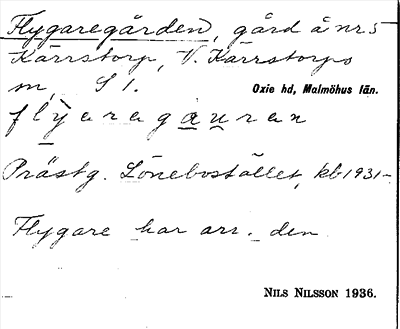 Flygaregården, gård å nr 5
Kärrstorp, V. Kärrstorps
m, S 1.
Oxie hd, Malmöhus län.
flỳaragau̲ran
Prästg. Lönebostället, kb 1931–
Flygare har arr. den
NILS NILSSON 1936.